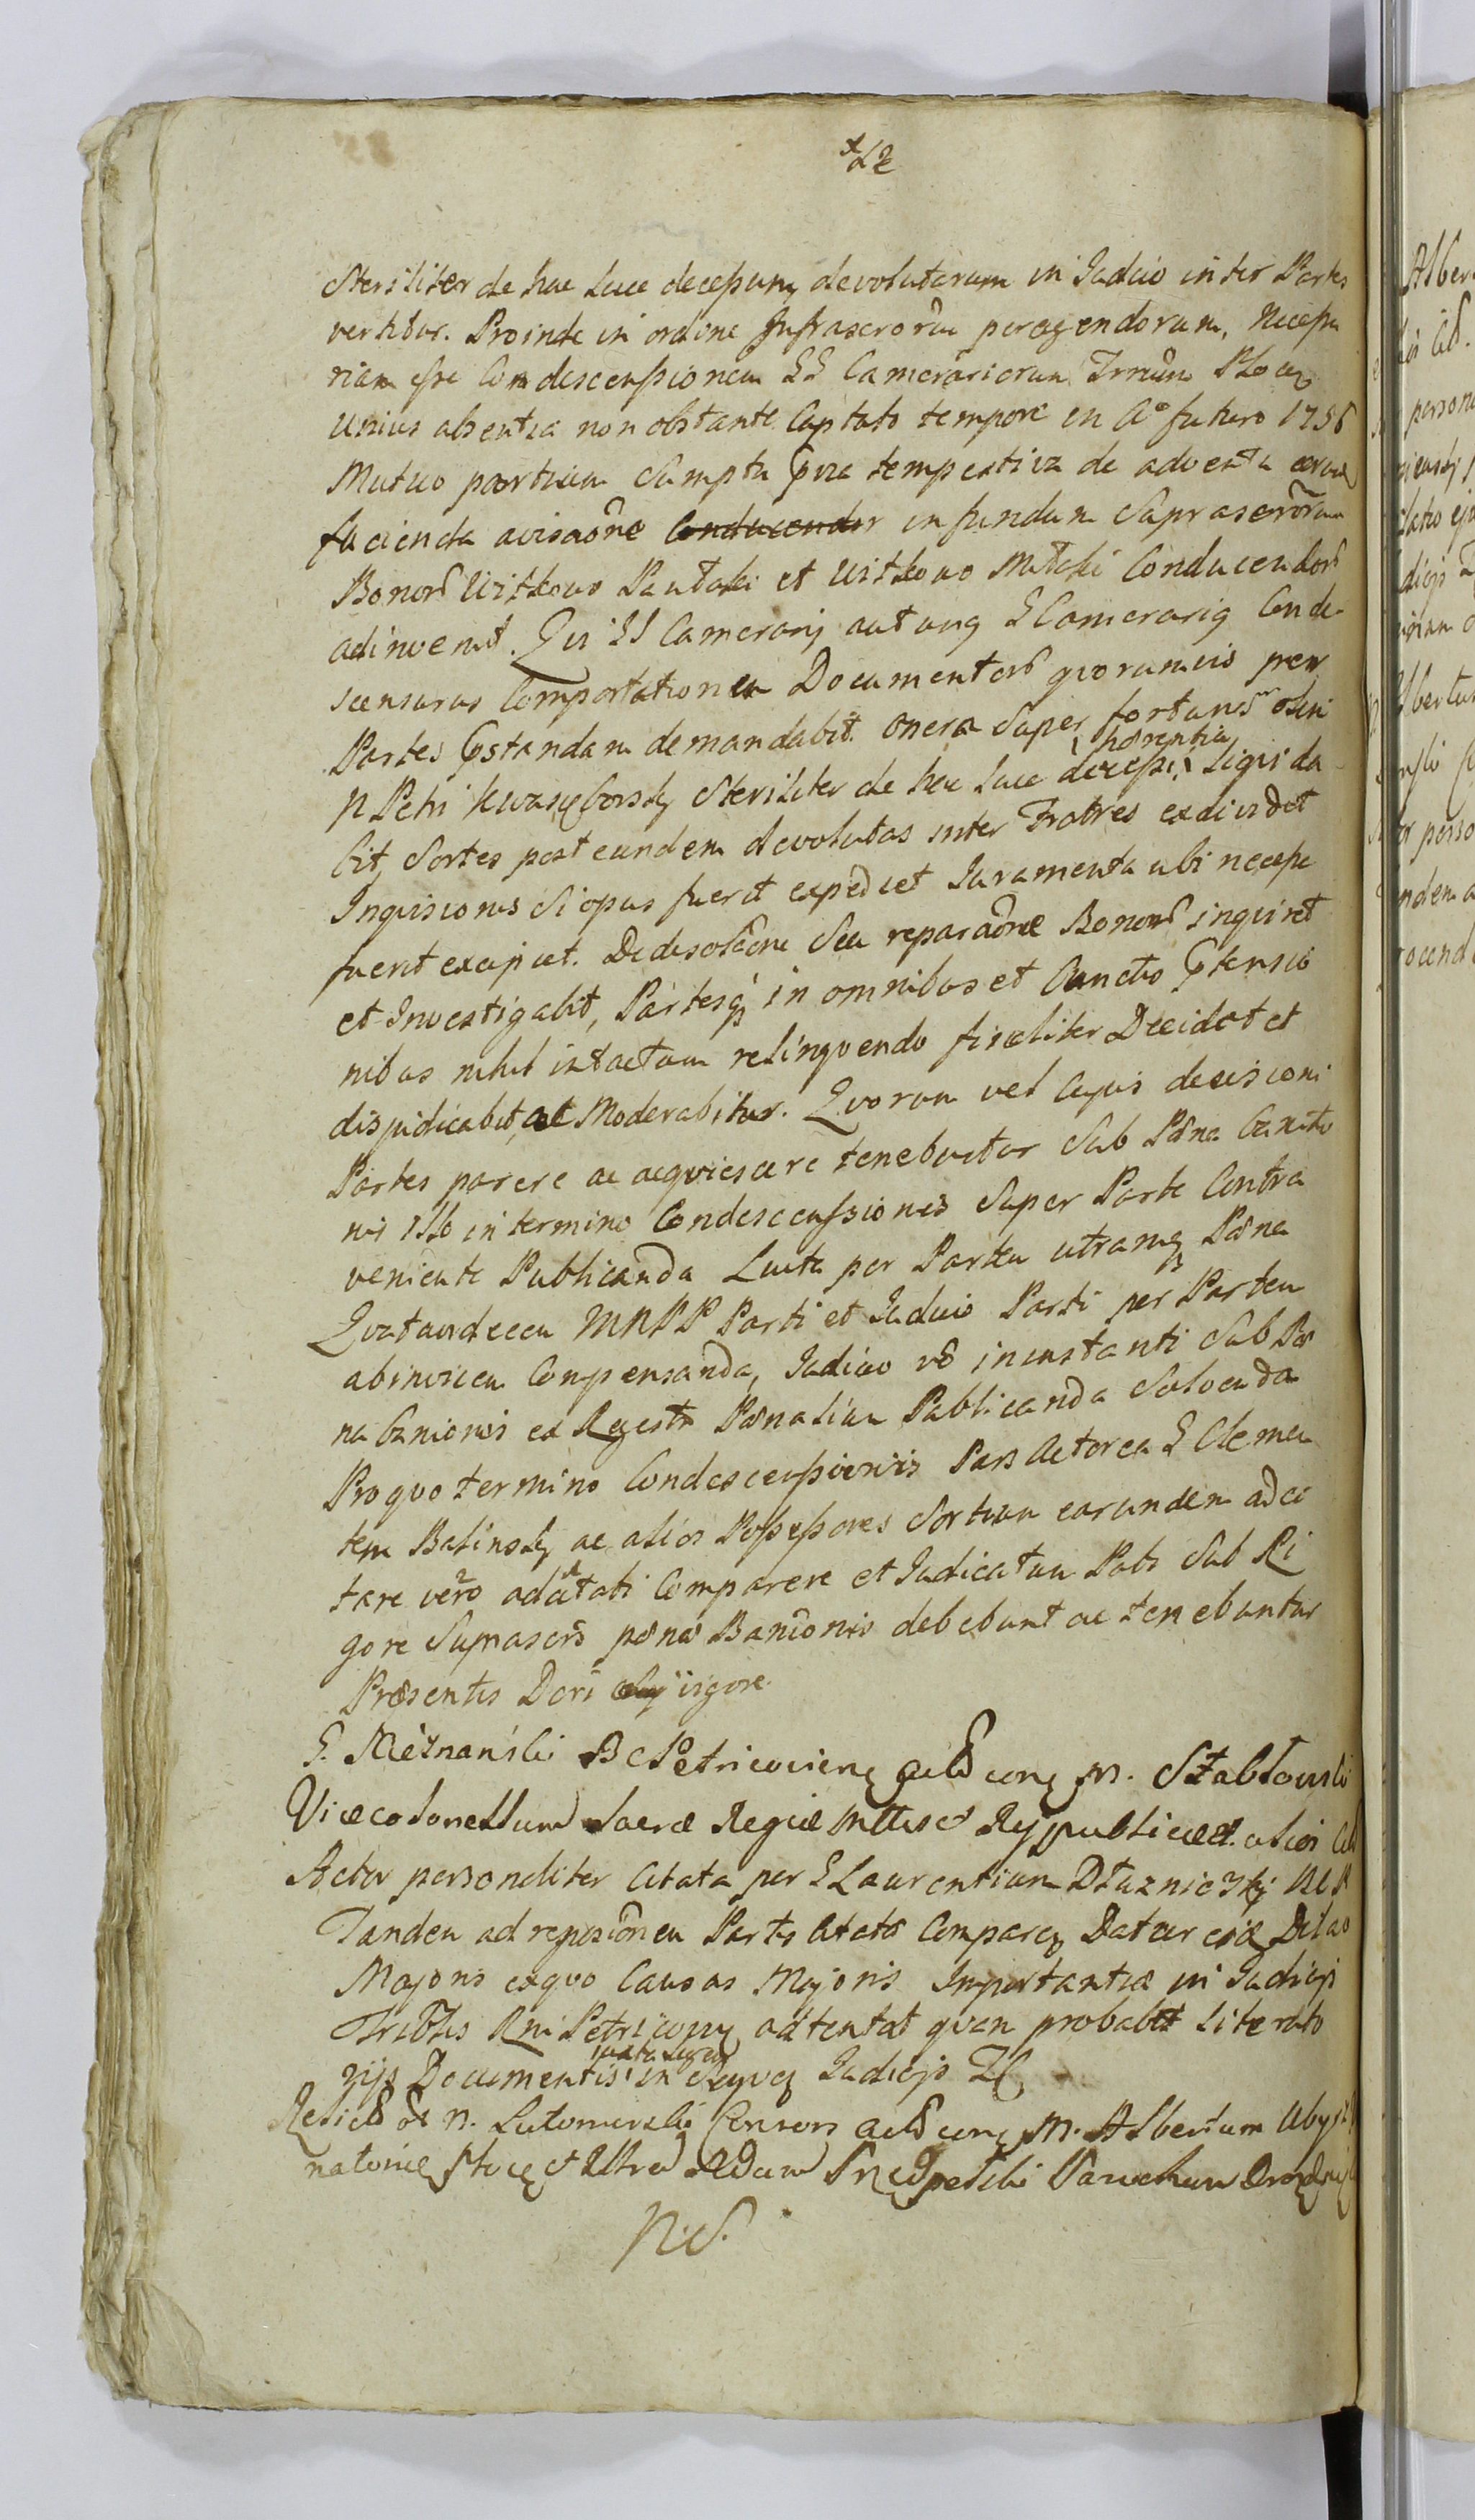 Steriliter de hac Luce decessum devolutarum in Judicio inter Partes
vertitur. Proinde in ordine Infrascrorum peragendorum, Necessa
riam esse Condescensionem GG Camerariorum Trrum Plocen
Unius absentia non obstante Captato tempore in Ao futuro 1756
Mutuo partium Sumptu pvia tempestiva de adventu eorum
facienda avisaone Conducendor in fundum Suprascrorum
Bonor Witkowo Pautaki et Witkowo Mutaki Conducendor
adinvenit. Qui GG Camerarij aut unq G Camerarig Conde
scensurus Comportationem Documentor quorumvis per
Partes pstandam demandabit. Onera Super fortunis olim
N Petri Kwasieborsky Steriliter de hac Luce decessi, hærentia Liquida
bit, Sortes post eundem devolutas inter Fratres exdividet
Inquisiones Si opus fuerit expediet Juramenta ubi necesse
fuerit excipiet. De desolaone Seu reparaone Bonor inquiret
et Investigabit, Partesq in omnibus et Cunctis ptensio
nibus nihil intactum relinquendo finaliter Decidet et
disjudicabit, ac Moderabitur. Quorum vel Cujus decisioni
Partes parere ac acquiescere tenebuntur Sub Pœna
nis Illo in termino Condescensionis Super Parte Contra
veniente Publicanda Luita per Partem utramq Pœna
Quatuordecem MRPP Parti et Judicio Parti per Partem
abinvicem Compensanda, Judicio vo in instanti Sub Pœ
na Banionis ex Regestro Pœnalium Publicanda Solvenda
Pro quo termino Condescensionis Pars Actorea G Clemen
tem Balinsky ac alios Possessores Sortium earundem adci
tare vero adcitati Comparere et Judicatum Pati Sub Ri
gore Suprascri pœnæ Banionis debebunt ac tenebuntur
Præsentis Dcri vigore
G. Mieznanski BC Petricovien actd conq M. Stabtowski
Vicecolonellum Sacræ Regiæ Mttis et Reypublicæ et alios Citt
Actor personaliter Citata per G Laurentium Dtuzniewsky
Tandem ad reposionem Partis Citatæ Comparen Datur eidæ Dilao
Majoris exquo Causas Majoris Importantiæ in Judicijs
Tribtis Rni Petricovien adtentat quam probabit Literato
rijs Documentis juxta Legem in Sequen Judicijs
Relict N. Lutomirski Consors actd conq M. Albertum
natorie
N.S.